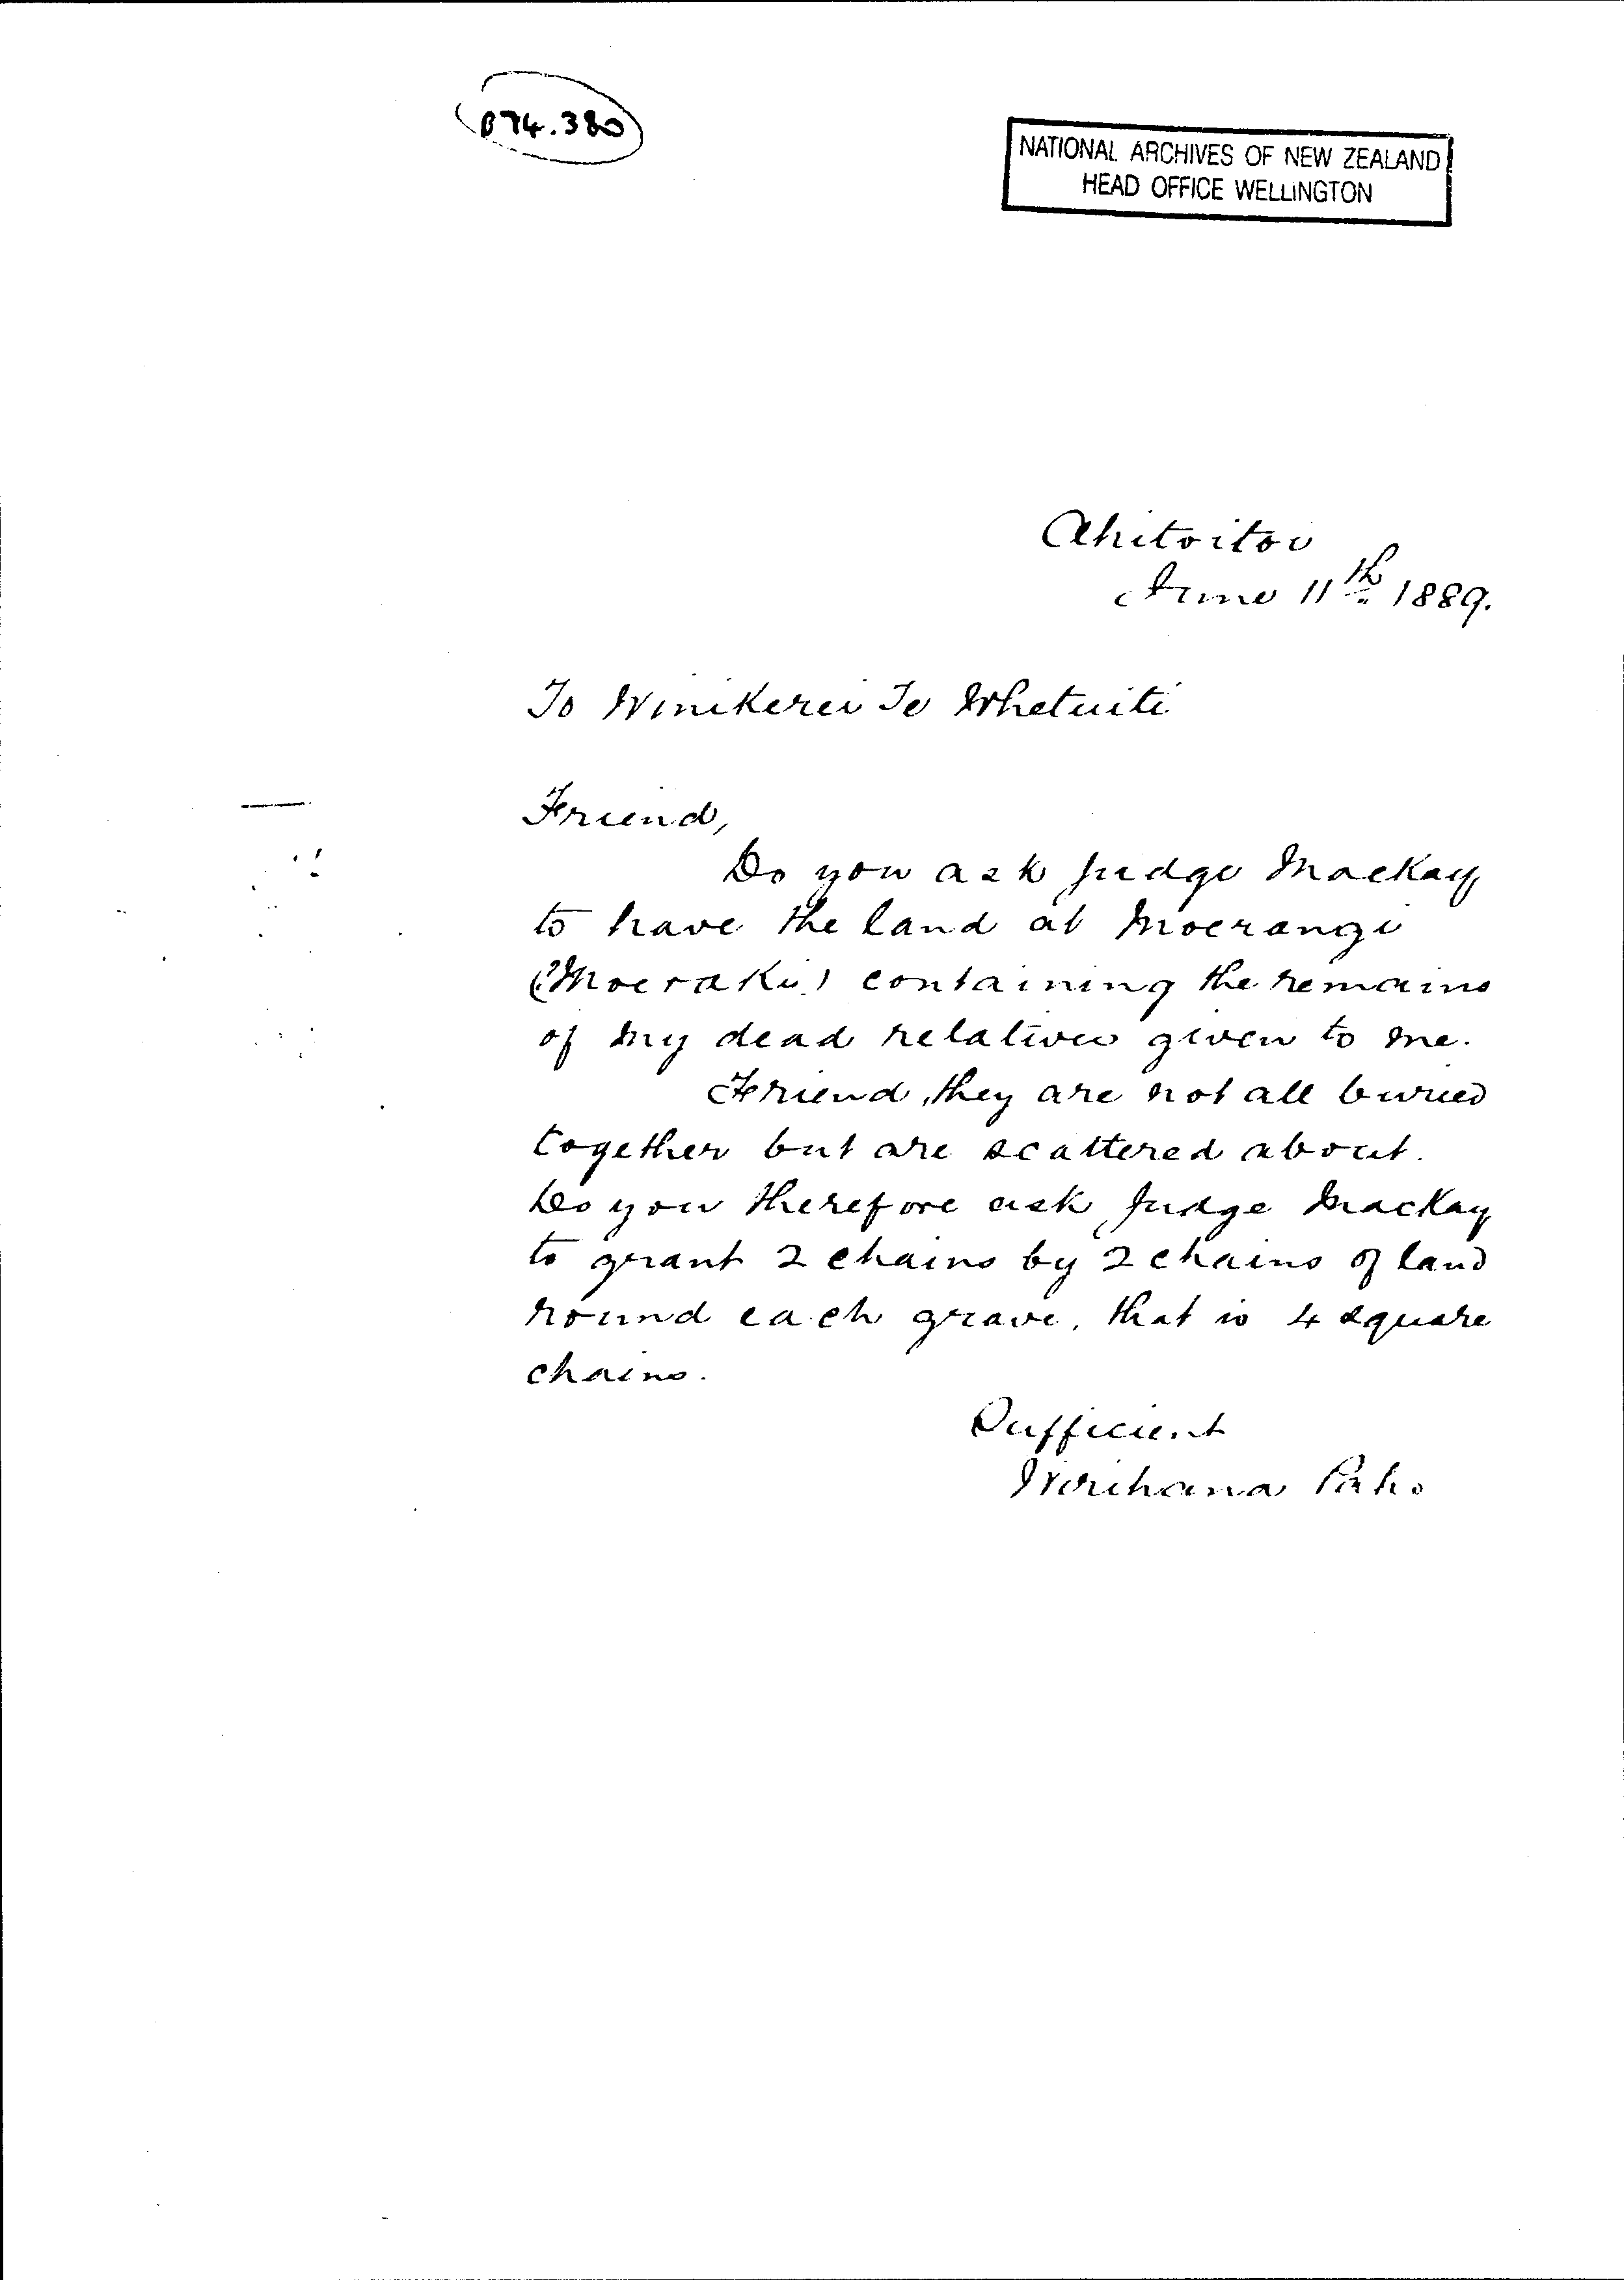 B74.380
NATIONAL ARCHIVES OF NEW ZEALAND
HEAD OFFICE WELLINGTON
Ahitoitoi
June 11th 1889.
To Winikerei Te Whetuiti
Friend,
Do you ask Judge Mackay
to have the land at Moerangi
(Moeraki) containing the remains
of my dead relatives given to me.
Friend, they are not all buried
together but are scattered about.
Do you therefore ask Judge Mackay
to grant 2 chains by 2 chains of land
round each grave, that is 4 square
chains.
Sufficient
Wirihana Paho